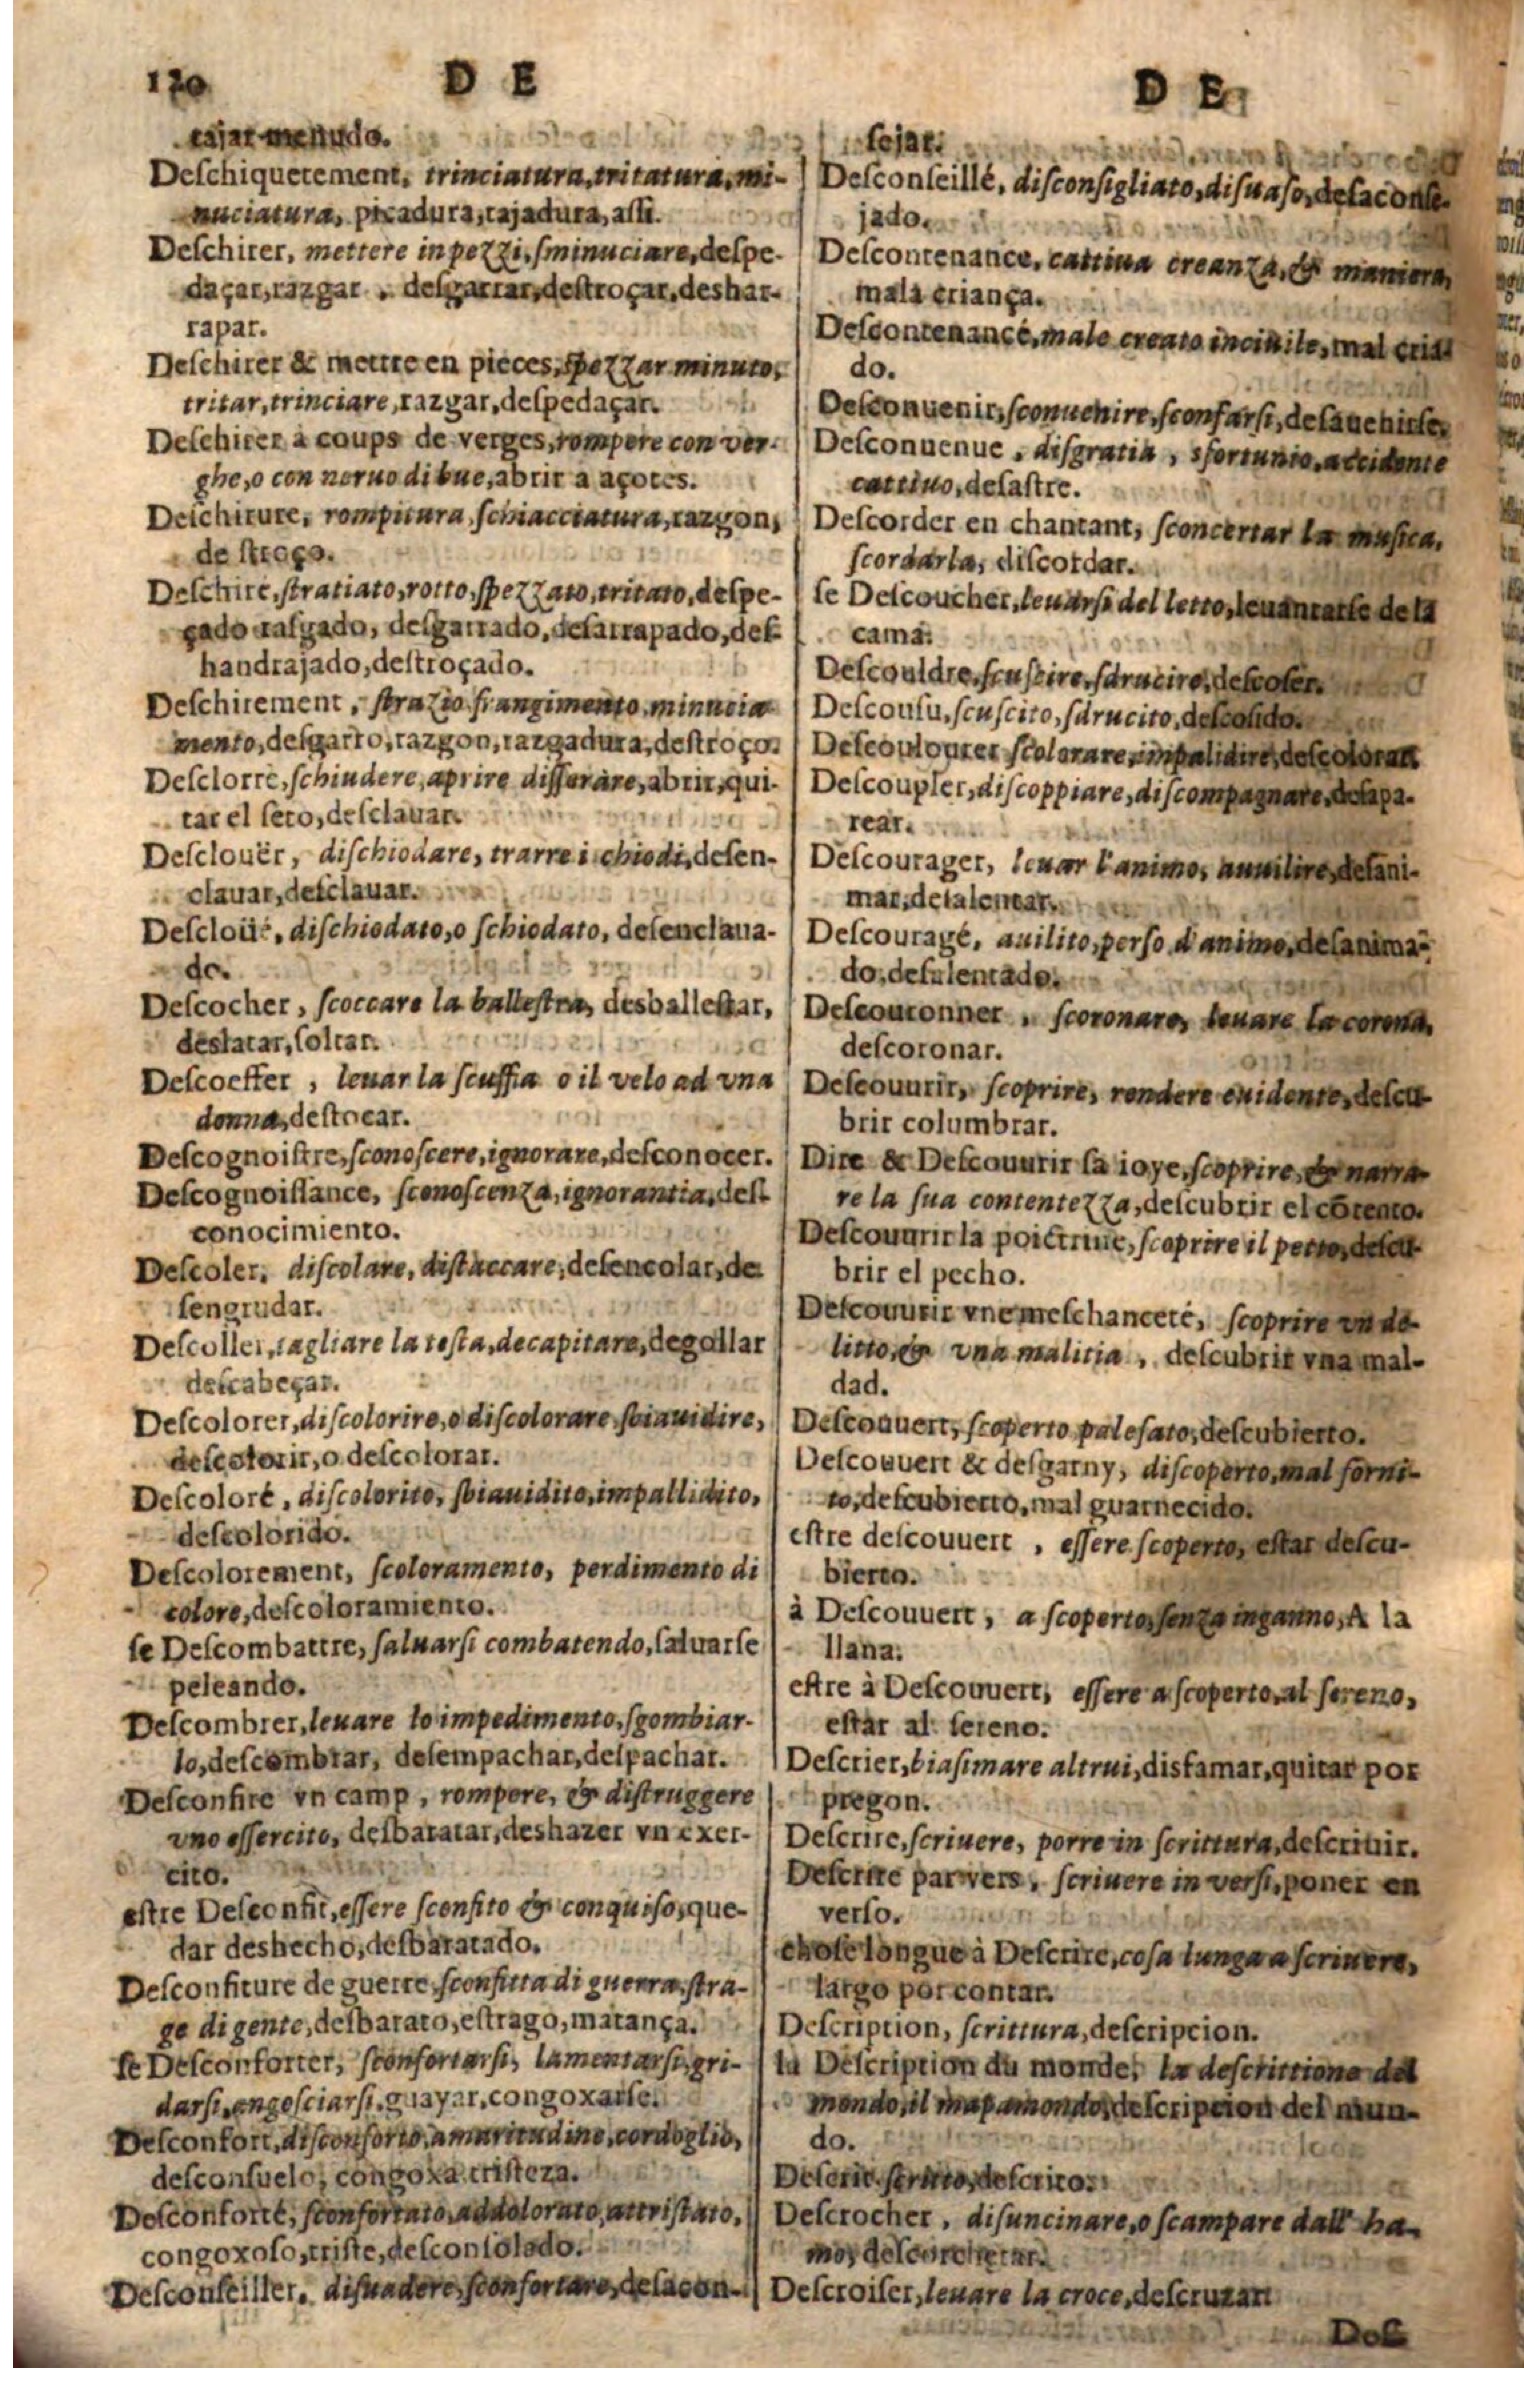 130 D E
tajar menudo.
Deſchiquetement, trinciatura, tritatura, mi-
nuciatura, picadura, tajadura, aſſi.
Deſchirer, mettere in pezzi, ſminuciare, deſpe-
daçar, razgar, deſgarrar, deſtroçar, deshar-
rapar.
Deſchirer & mettre en pieces, ſpezzar minuto,
tritar, trinciare, razgar, deſpedaçar.
Deſchirer à coups de verges, rompere con ver-
ghe, o con neruo di bue, abrir a açotes.
Deſchirure, rompitura, ſchiacciatura, razgon,
de ſtroço.
Deſchiré, ſtratiato, rotto, ſpezzato, tritato, deſpe-
çado raſgado, deſgarrado, deſarrapado, deſ-
handrajado, deſtroçado.
Deſchirement, ſtrazio frangimento, minucia
mento, deſgarro, razgon, razgadura, deſtroço.
Deſclorre, ſchiudere, aprire diſſerare, abrir, qui-
tar el ſeto, deſclauar.
Deſclouër, diſchiodare, trarre i chiodi, deſen-
clauar, deſclauar.
Deſcloüé, diſchiodato, o ſchiodato, deſenclaua-
do.
Deſcocher, ſcoccare la balleſtra, desballeſtar,
deslatar, ſoltar.
Deſcoeffer, leuar la ſcuffia o il velo ad vna
donna, deſtocar.
Deſcognoiſtre, ſconoſcere, ignorare, deſconocer.
Deſcognoiſſance, ſconoſcenza, ignorantia, deſ-
conocimiento.
Deſcoler, diſcolare, diſtaccare, deſencolar, de
ſengrudar.
Deſcoller, tagliare la teſta, decapitare, degollar
deſcabeçar.
Deſcolorer, diſcolorire, o diſcolorare ſbiauidire,
deſcolorir, o deſcolorar.
Deſcoloré, diſcolorito, ſbiauidito, impallidito,
deſcolorido.
Deſcolorement, ſcoloramento, perdimento di
colore, deſcoloramiento.
ſe Deſcombattre, ſaluarſi combatendo, ſaluarſe
peleando.
Deſcombrer, leuare lo impedimento, ſgombiar-
lo, deſcombrar, deſempachar, deſpachar.
Deſconfire vn camp, rompere, & diſtruggere
vno eſſercito, deſbaratar, deshazer vn exer-
cito.
eſtre Deſconfit, eſſere ſconfito & conquiſo, que-
dar deshecho, deſbaratado.
Deſconfiture de guerre, ſconfitta di guerra, ſtra-
ge di gente, deſbarato, eſtrago, matança.
ſe Deſconforter, ſconfortarſi, lamentarſi, gri-
darſi, angoſciarſi, guayar, congoxarſe.
Deſconfort, diſconforto, amaritudine, cordoglio,
deſconſuelo, congoxa triſteza.
Deſconforté, ſconfortato, addolorato, attriſtato,
congoxoſo, triſte, deſconſolado.
Deſconſeiller, diſuadere, ſconfortare, deſacon-
D E
ſejar.
Deſconſeillé, diſconſigliato, diſuaſo, deſaconſe-
jado.
Deſcontenance, cattiua creanza, & maniera,
mala criança.
Deſcontenancé, male creato inciuile, mal cria-
do.
Deſconuenir, ſconuenire, ſconfarſi, deſauenirſe.
Deſconuenue, diſgratia, sfortunio, accidente
cattiuo, deſaſtre.
Deſcorder en chantant, ſconcertar la muſica,
ſcordarla, diſcordar.
ſe Deſcoucher, leuarſi del letto, leuantarſe de la
cama.
Deſcouldre, ſcuſcire, ſdrucire, deſcoſer.
Deſcouſu, ſcuſcito, ſdrucito, deſcoſido.
Deſcoulourer ſcolorare, impalidire, deſcolorar.
Deſcoupler, diſcoppiare, diſcompagnare, deſapa-
rear.
Deſcourager, leuar l'animo, auuilire, deſani-
mar, deſalentar.
Deſcouragé, auilito, perſo d'animo, deſanima-
do, deſalentado.
Deſcouronner, ſcoronare, leuare la corona,
deſcoronar.
Deſcouurir, ſcoprire, rendere euidente, deſcu-
brir columbrar.
Dire & Deſcouurir ſa ioye, ſcoprire, & narra-
re la ſua contentezza, deſcubrir el cõtento.
Deſcouurir la poictrine, ſcoprire il petto, deſcu-
brir el pecho.
Deſcouurir vne meſchanceté, ſcoprire vn de-
litto, & vna malitia, deſcubrir vna mal-
dad.
Deſcouuert, ſcoperto paleſato, deſcubierto.
Deſcouuert & deſgarny, diſcoperto, mal forni-
to, deſcubierto, mal guarnecido.
eſtre deſcouuert, eſſere ſcoperto, eſtar deſcu-
bierto.
à Deſcouuert, a ſcoperto, ſenza inganno, A la
llana.
eſtre à Deſcouuert, eſſere a ſcoperto, al ſereno,
eſtar al ſereno.
Deſcrier, biaſimare altrui, disfamar, quitar por
pregon.
Deſcrire, ſcriuere, porre in ſcrittura, deſcriuir.
Deſcrire par vers, ſcriuere in verſi, poner en
verſo.
choſe longue à Deſcrire, coſa lunga a ſcriuere,
largo por contar.
Deſcription, ſcrittura, deſcripcion.
la Deſcription du monde, la deſcrittione del
mondo, il mapamondo, deſcripcion del mun-
do.
Deſcrit ſcritto, deſcrito.
Deſcrocher, diſuncinare, o ſcampare dall' ha-
mo,
Deſcroiſer, leuare la croce, deſcruzar.
Deſ-